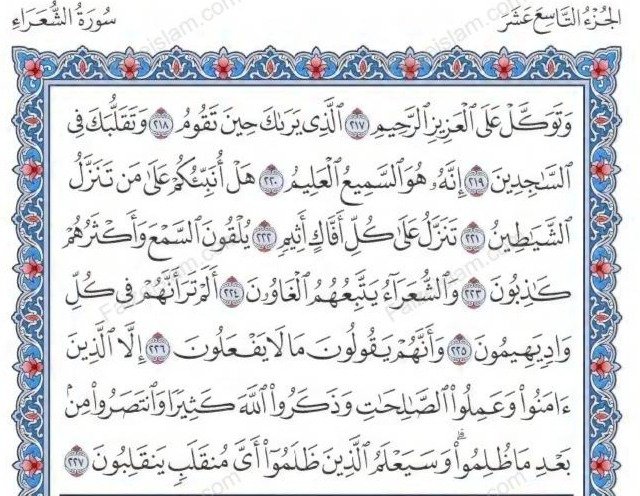 الجزء التاسع عشر
سورة الشعراء
وَتَوَكَّلْ عَلَى ٱلْعَزِيزِ ٱلرَّحِيمِ ٢١٧ ٱلَّذِى يَرَىٰكَ حِينَ تَقُومُ ٢١٨ وَتَقَلُّبَكَ فِى
ٱلسَّٰجِدِينَ ٢١٩ إِنَّهُۥ هُوَ ٱلسَّمِيعُ ٱلْعَلِيمُ ٢٢٠ هَلْ أُنَبِّئُكُمْ عَلَىٰ مَن تَنَزَّلُ
ٱلشَّيَٰطِينُ ٢٢١ تَنَزَّلُ عَلَىٰ كُلِّ أَفَّاكٍ أَثِيمٍ ٢٢٢ يُلْقُونَ ٱلسَّمْعَ وَأَكْثَرُهُمْ
كَٰذِبُونَ ٢٢٣ وَٱلشُّعَرَآءُ يَتَّبِعُهُمُ ٱلْغَاوُۥنَ ٢٢٤ أَلَمْ تَرَ أَنَّهُمْ فِى كُلِّ
وَادٍ يَهِيمُونَ ٢٢٥ وَأَنَّهُمْ يَقُولُونَ مَا لَا يَفْعَلُونَ ٢٢٦ إِلَّا ٱلَّذِينَ
ءَامَنُوا۟ وَعَمِلُوا۟ ٱلصَّٰلِحَٰتِ وَذَكَرُوا۟ ٱللَّهَ كَثِيرًا وَٱنتَصَرُوا۟ مِنۢ
بَعْدِ مَا ظُلِمُوا۟ ۗ وَسَيَعْلَمُ ٱلَّذِينَ ظَلَمُوٓا۟ أَىَّ مُنقَلَبٍ يَنقَلِبُونَ ٢٢٧